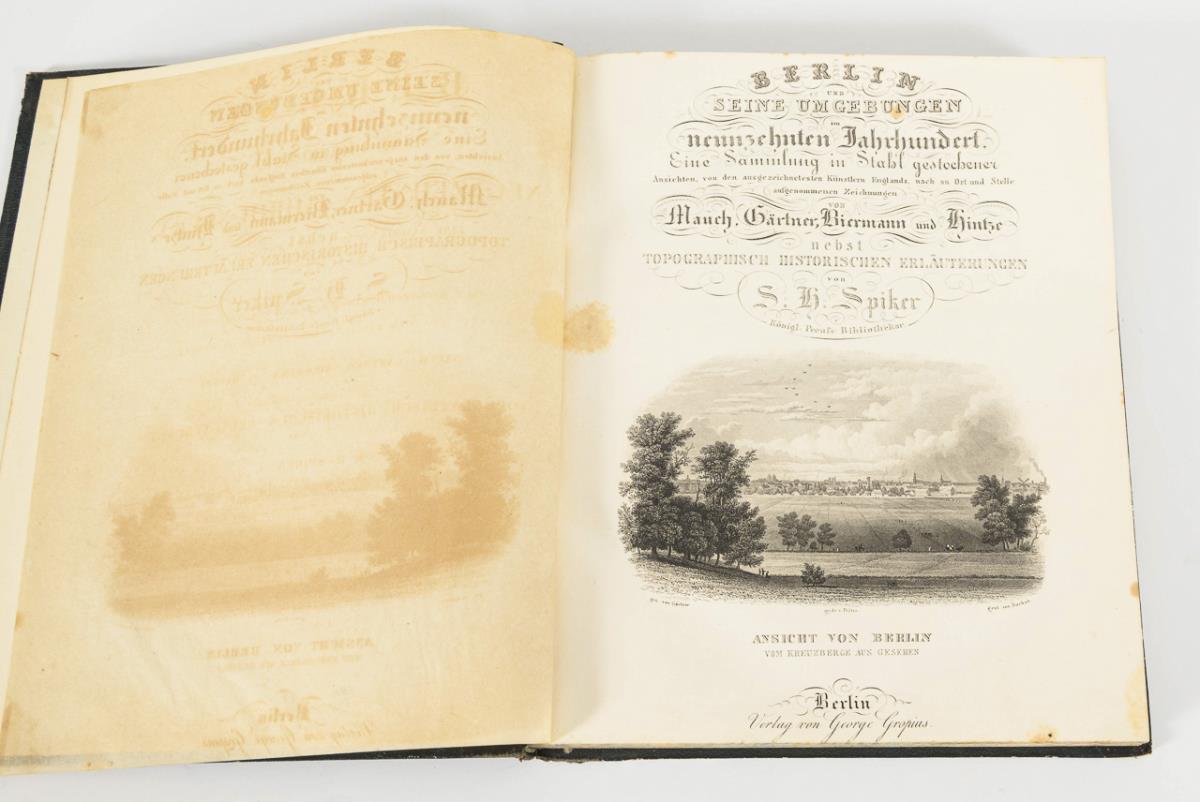 BERLIN
UND
SEINE UMGEBUNGEN
im
neunzehnten Jahrhundert.
Eine Sammlung in Stahl gestochener
Ansichten, von den ausgezeichnetesten Künstlern Englands, nach an Ort und Stelle
aufgenommenen Zeichnungen
VON
Mauch, Gärtner, Biermann und Hintze
nebst
TOPOGRAPHISCH HISTORISCHEN ERLÄUTERUNGEN
VON
S. H. Spiker
Königl. Preuſs. Bibliothekar.
ANSICHT VON BERLIN
VOM KREUZBERGE AUS GESEHEN
Berlin
Verlag von George Gropius.